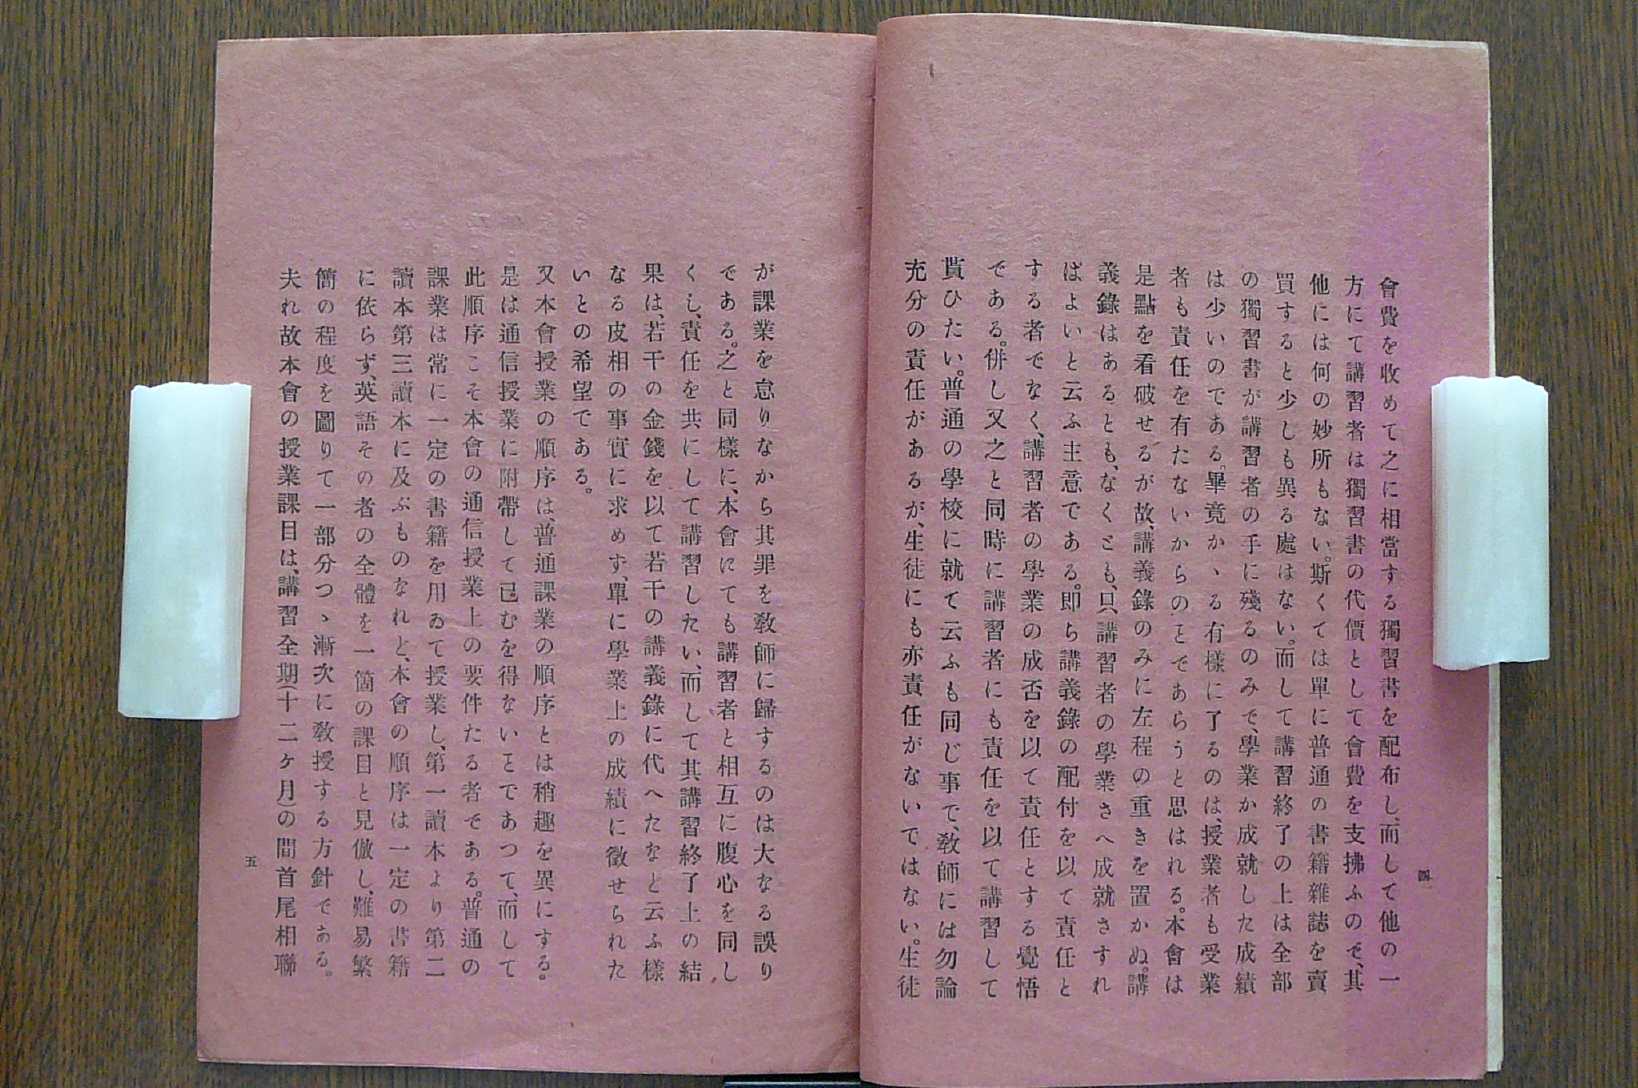 會費を收めて之に相當する獨習書を配布し、而して他の一
方にて講習者は獨習書の代價として會費を支拂ふので、其
他には何の妙所もない。斯くては單に普通の書籍雜誌を賣
買すると少しも異る處はない。而して講習終了の上は全部
の獨習書が講習者の手に殘るのみで、學業か成就した成績
は少いのである。畢竟かゝる有樣に了るのは、授業者も受業
者も責任を有たないからのことであらうと思はれる。本會は
是點を看破せるが故、講義錄のみに左程の重きを置かぬ。講
義錄はあるとも、なくとも、只講習者の學業さへ成就さすれ
ばよいと云ふ主意である。即ち講義錄の配付を以て責任と
する者でなく、講習者の學業の成否を以て責任とする覺悟
である。併し又之と同時に講習者にも責任を以て講習して
貰ひたい。普通の學校に就て云ふも同じ事で、敎師には勿論
充分の責任があるが、生徒にも亦責任がないではない。生徒
四
が課業を怠りなから其罪を敎師に歸するのは大なる誤り
である。之と同樣に、本會にても講習者と相互に腹心を同し
くし、責任を共にして講習したい、而して其講習終了上の結
果は、若干の金錢を以て若干の講義錄に代へたなと云ふ樣
なる皮相の事實に求めず、單に學業上の成績に徵せられた
いとの希望である。
又本會授業の順序は、普通課業の順序とは稍趣を異にする。
是は通信授業に附帶して已むを得ないことであつて、而して
此順序こそ本會の通信授業上の要件たる者である。普通の
課業は常に一定の書籍を用ゐて授業し、第一讀本より第二
讀本第三讀本に及ぶものなれと、本會の順序は一定の書籍
に依らず、英語その者の全體を一箇の課目と見倣し、難易繁
簡の程度を圖りて一部分つゝ漸次に敎授する方針である。
夫れ故本會の授業課目は、講習全期(十二ヶ月)の間首尾相聯
五